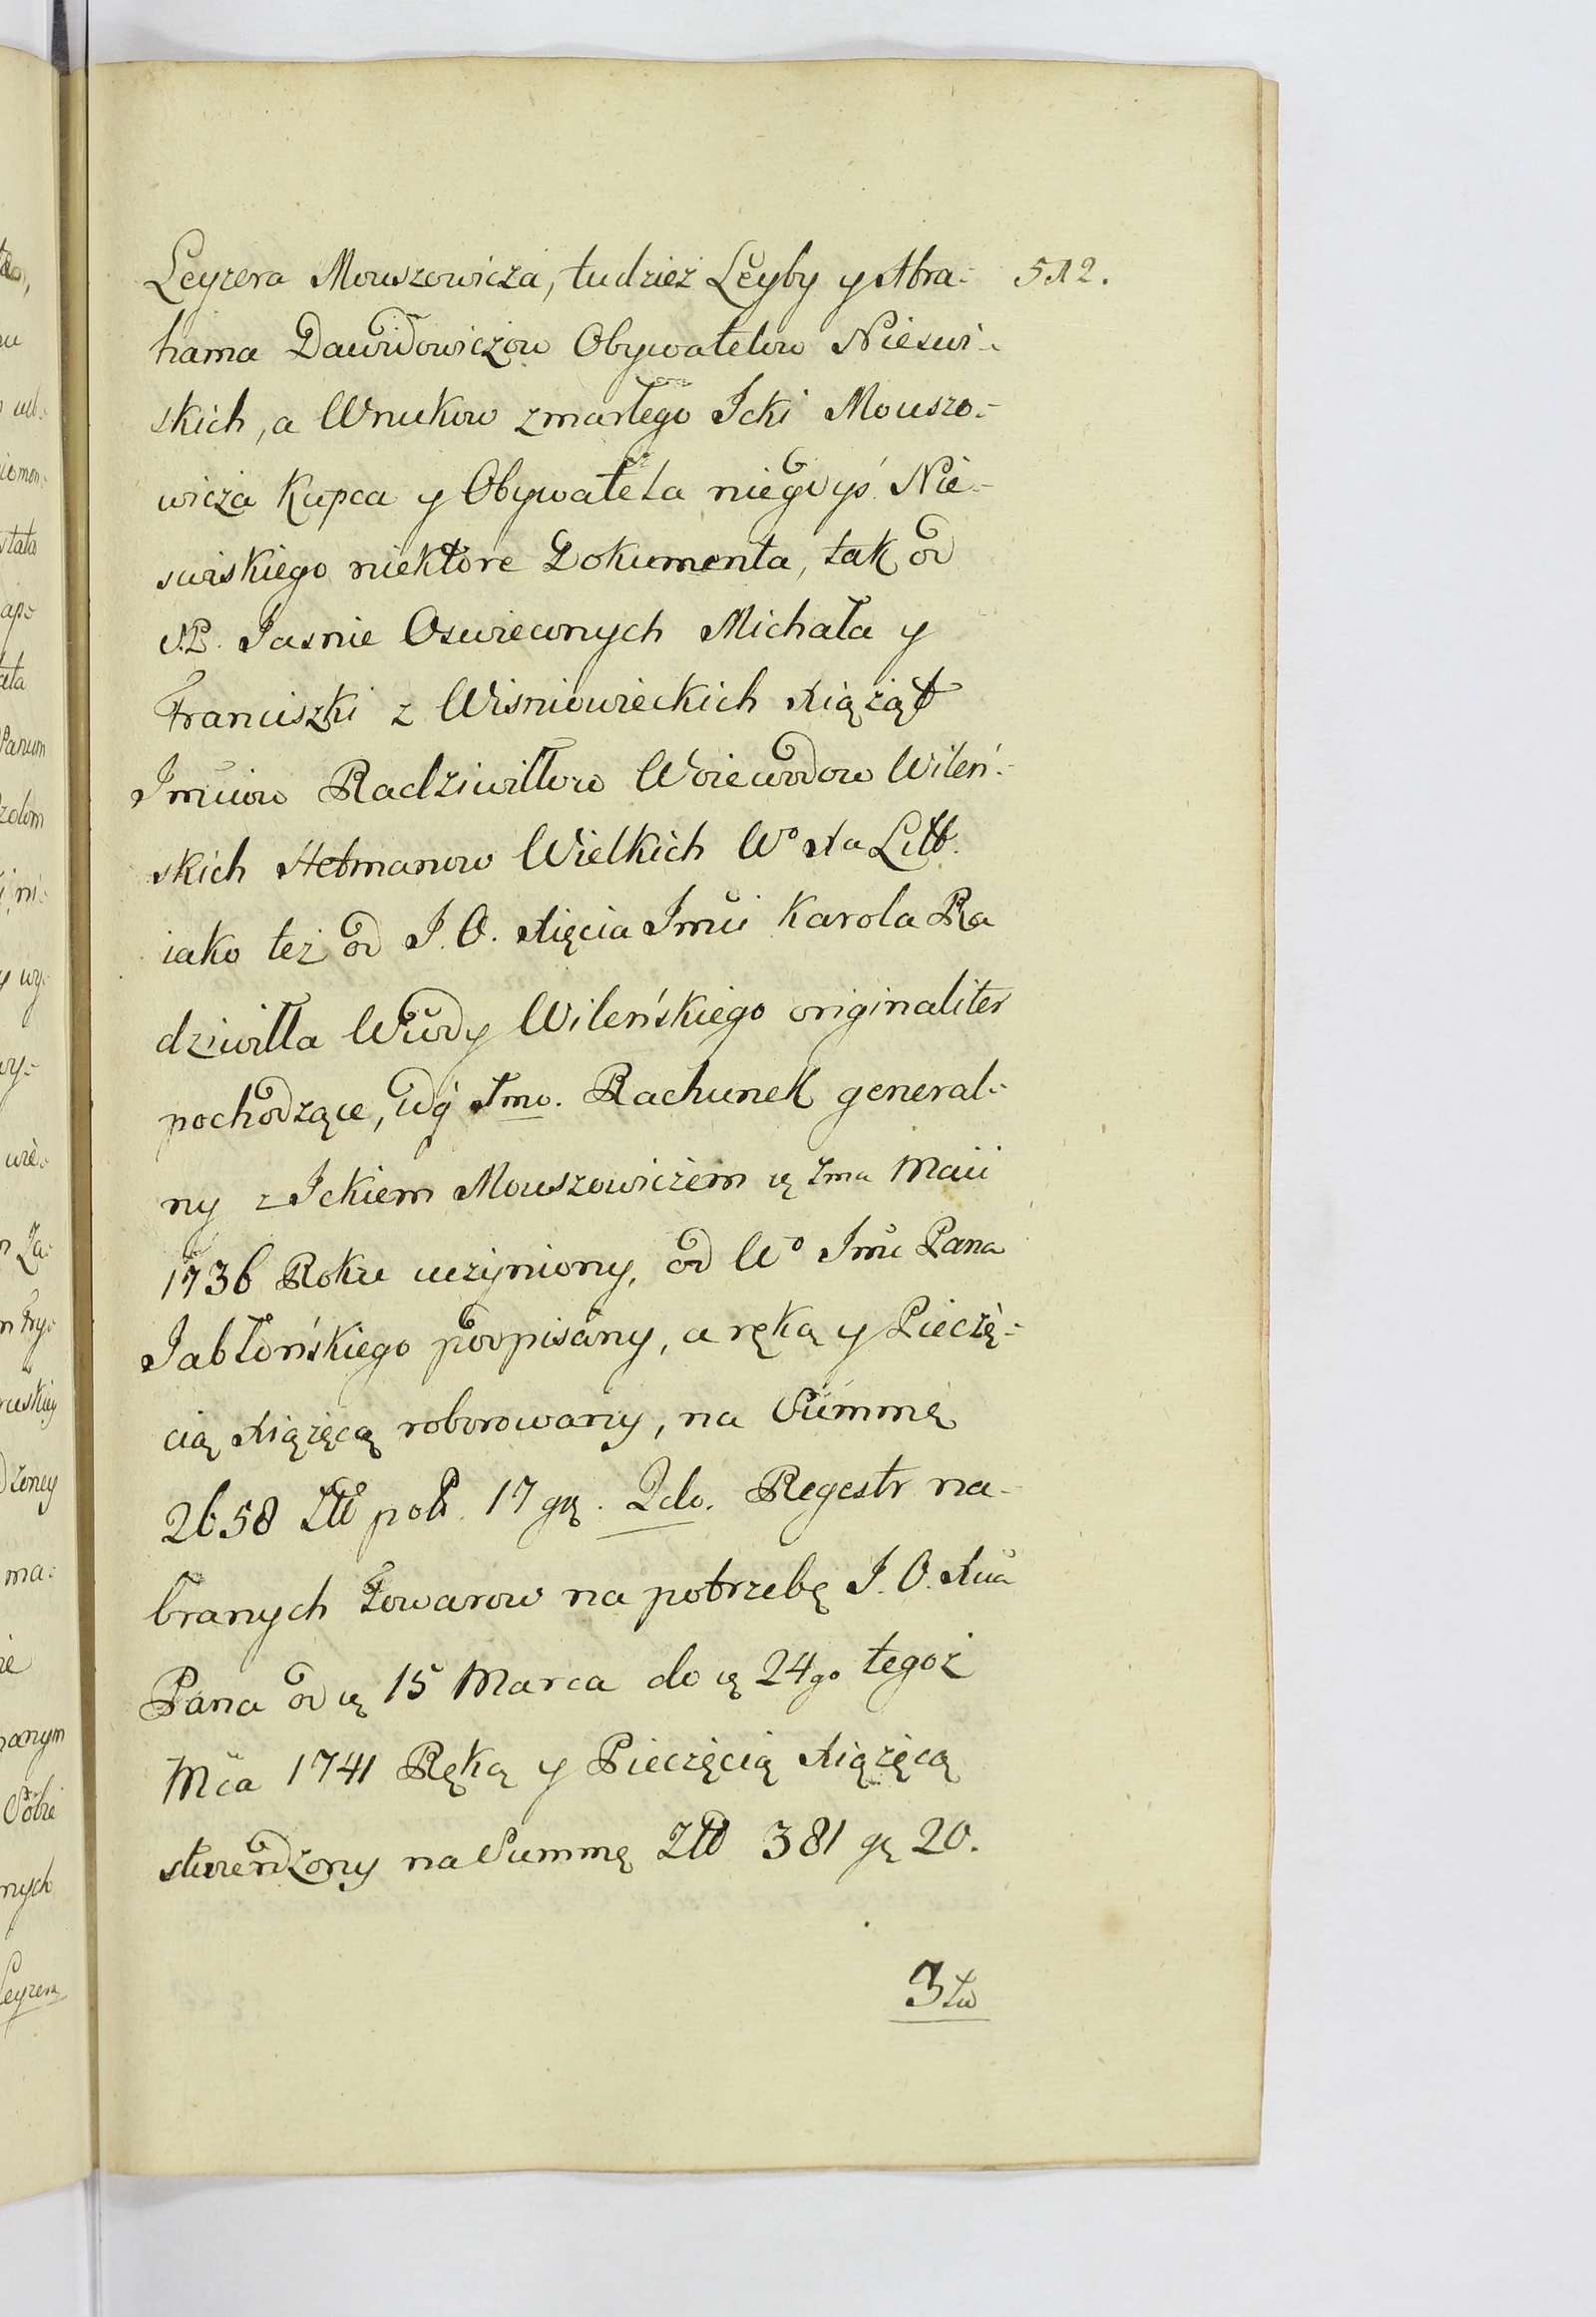 Leyzera Mouszowicza, tudziez Leyby y Abra= 512.
hama Dawidowiczow Obywatelow Nieswi=
skich, a Wnukow zmarłego Icki Mouszo=
wicza Kupca y Obywatela niegdyś Nie=
swiskiego niektore Dokumenta, tak od
S.P. Jasnie Oswieconych Michała y
Franciszki z Wisniowieckich Xiążąt
Imciow Radziwiłłow Woiewodow Wileń=
skich Hetmanow Wielkich Wo Xa Litt.
iako też od J. O. Xięcia Imci Karola Ra
dziwiłła Wdy Wileńskiego originaliter
pochodzące, 1mo. Rachunek general=
ny z Ickiem Mouszowiczem 7ma Maii
1736 Roku uczyniony, od Wo Imc Pana
Jabłońskiego podpisany, a ręką y Pieczę=
cią Xiążęcą roborowany, na Summę
2658 Złł pols. 17 gr. 2do. Regestr na=
branych Towarow na potrzebę J. O. Xcia
Pana od 15 Marca do 24go tegoż
Mca 1741 Ręką y Pieczęcią Xiążęcą
stwierdzony na Summę Złł 381 gr 20.
3tio